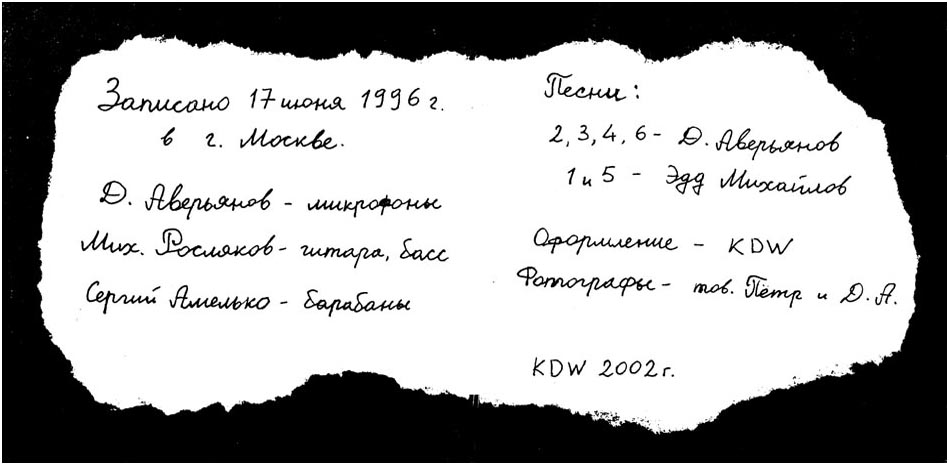 Записано 17 июня 1996 г.
в г. Москве.
Д. Аверьянов - микрофоны
Мих. Росляков - гитара, басс
Сергий Амелько - барабаны
Песни:
2, 3, 4, 6 - Д. Аверьянов
1 и 5 - Эдд Михайлов
Оформление - KDW
Фотографы - тов. Пётр и Д. А.
KDW 2002 г.